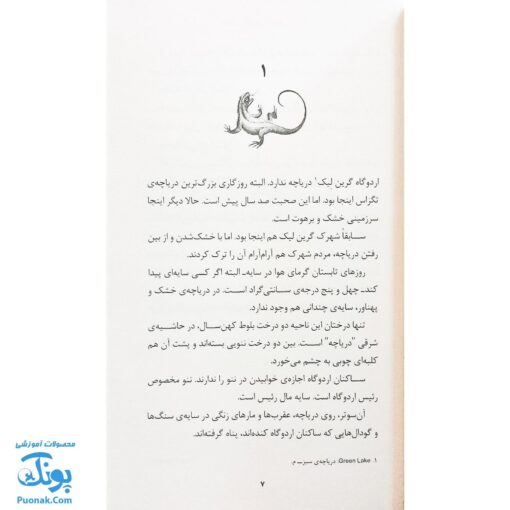 ۱
اردوگاه گرین لیک۱ دریاچه ندارد. البته روزگاری بزرگ‌ترین دریاچه‌ی
تگزاس اینجا بود. اما این صحبت صد سال پیش است. حالا دیگر اینجا
سرزمینی خشک و برهوت است.
سـابقاً شهرک گرین لیک هم اینجا بود. اما با خشک‌شدن و از بین
رفتن دریاچه، مردم شهرک هم آرام‌آرام آن را ترک کردند.
روزهای تابستان گرمای هوا در سایه‌ـ البته اگر کسی سایه‌ای پیدا
کندـ چهل و پنج درجه‌ی سـانتی‌گراد اسـت. در دریاچه‌ی خشک و
پهناور، سایه‌ی چندانی هم وجود ندارد.
تنها درختان این ناحیه دو درخت بلوط کهن‌سـال، در حاشیه‌ی
شرقی "دریاچه" است. بین دو درخت ننویی بسته‌اند و پشت آن هم
کلبه‌ای چوبی به چشم می‌خورد.
سـاکنان اردوگاه اجازه‌ی خوابیدن در ننو را ندارند. ننو مخصوص
رئیس اردوگاه است. سایه مال رئیس است.
آن‌سوتر، روی دریاچه، عقرب‌ها و مارهای زنگی در سایه‌ی سنگ‌ها
و گودال‌هایی که ساکنان اردوگاه کنده‌اند، پناه گرفته‌اند.
۱. Green Lake: دریاچه‌ی سبزـ م.
۷
محصولات آموزشی
پونک
Puonak.Com